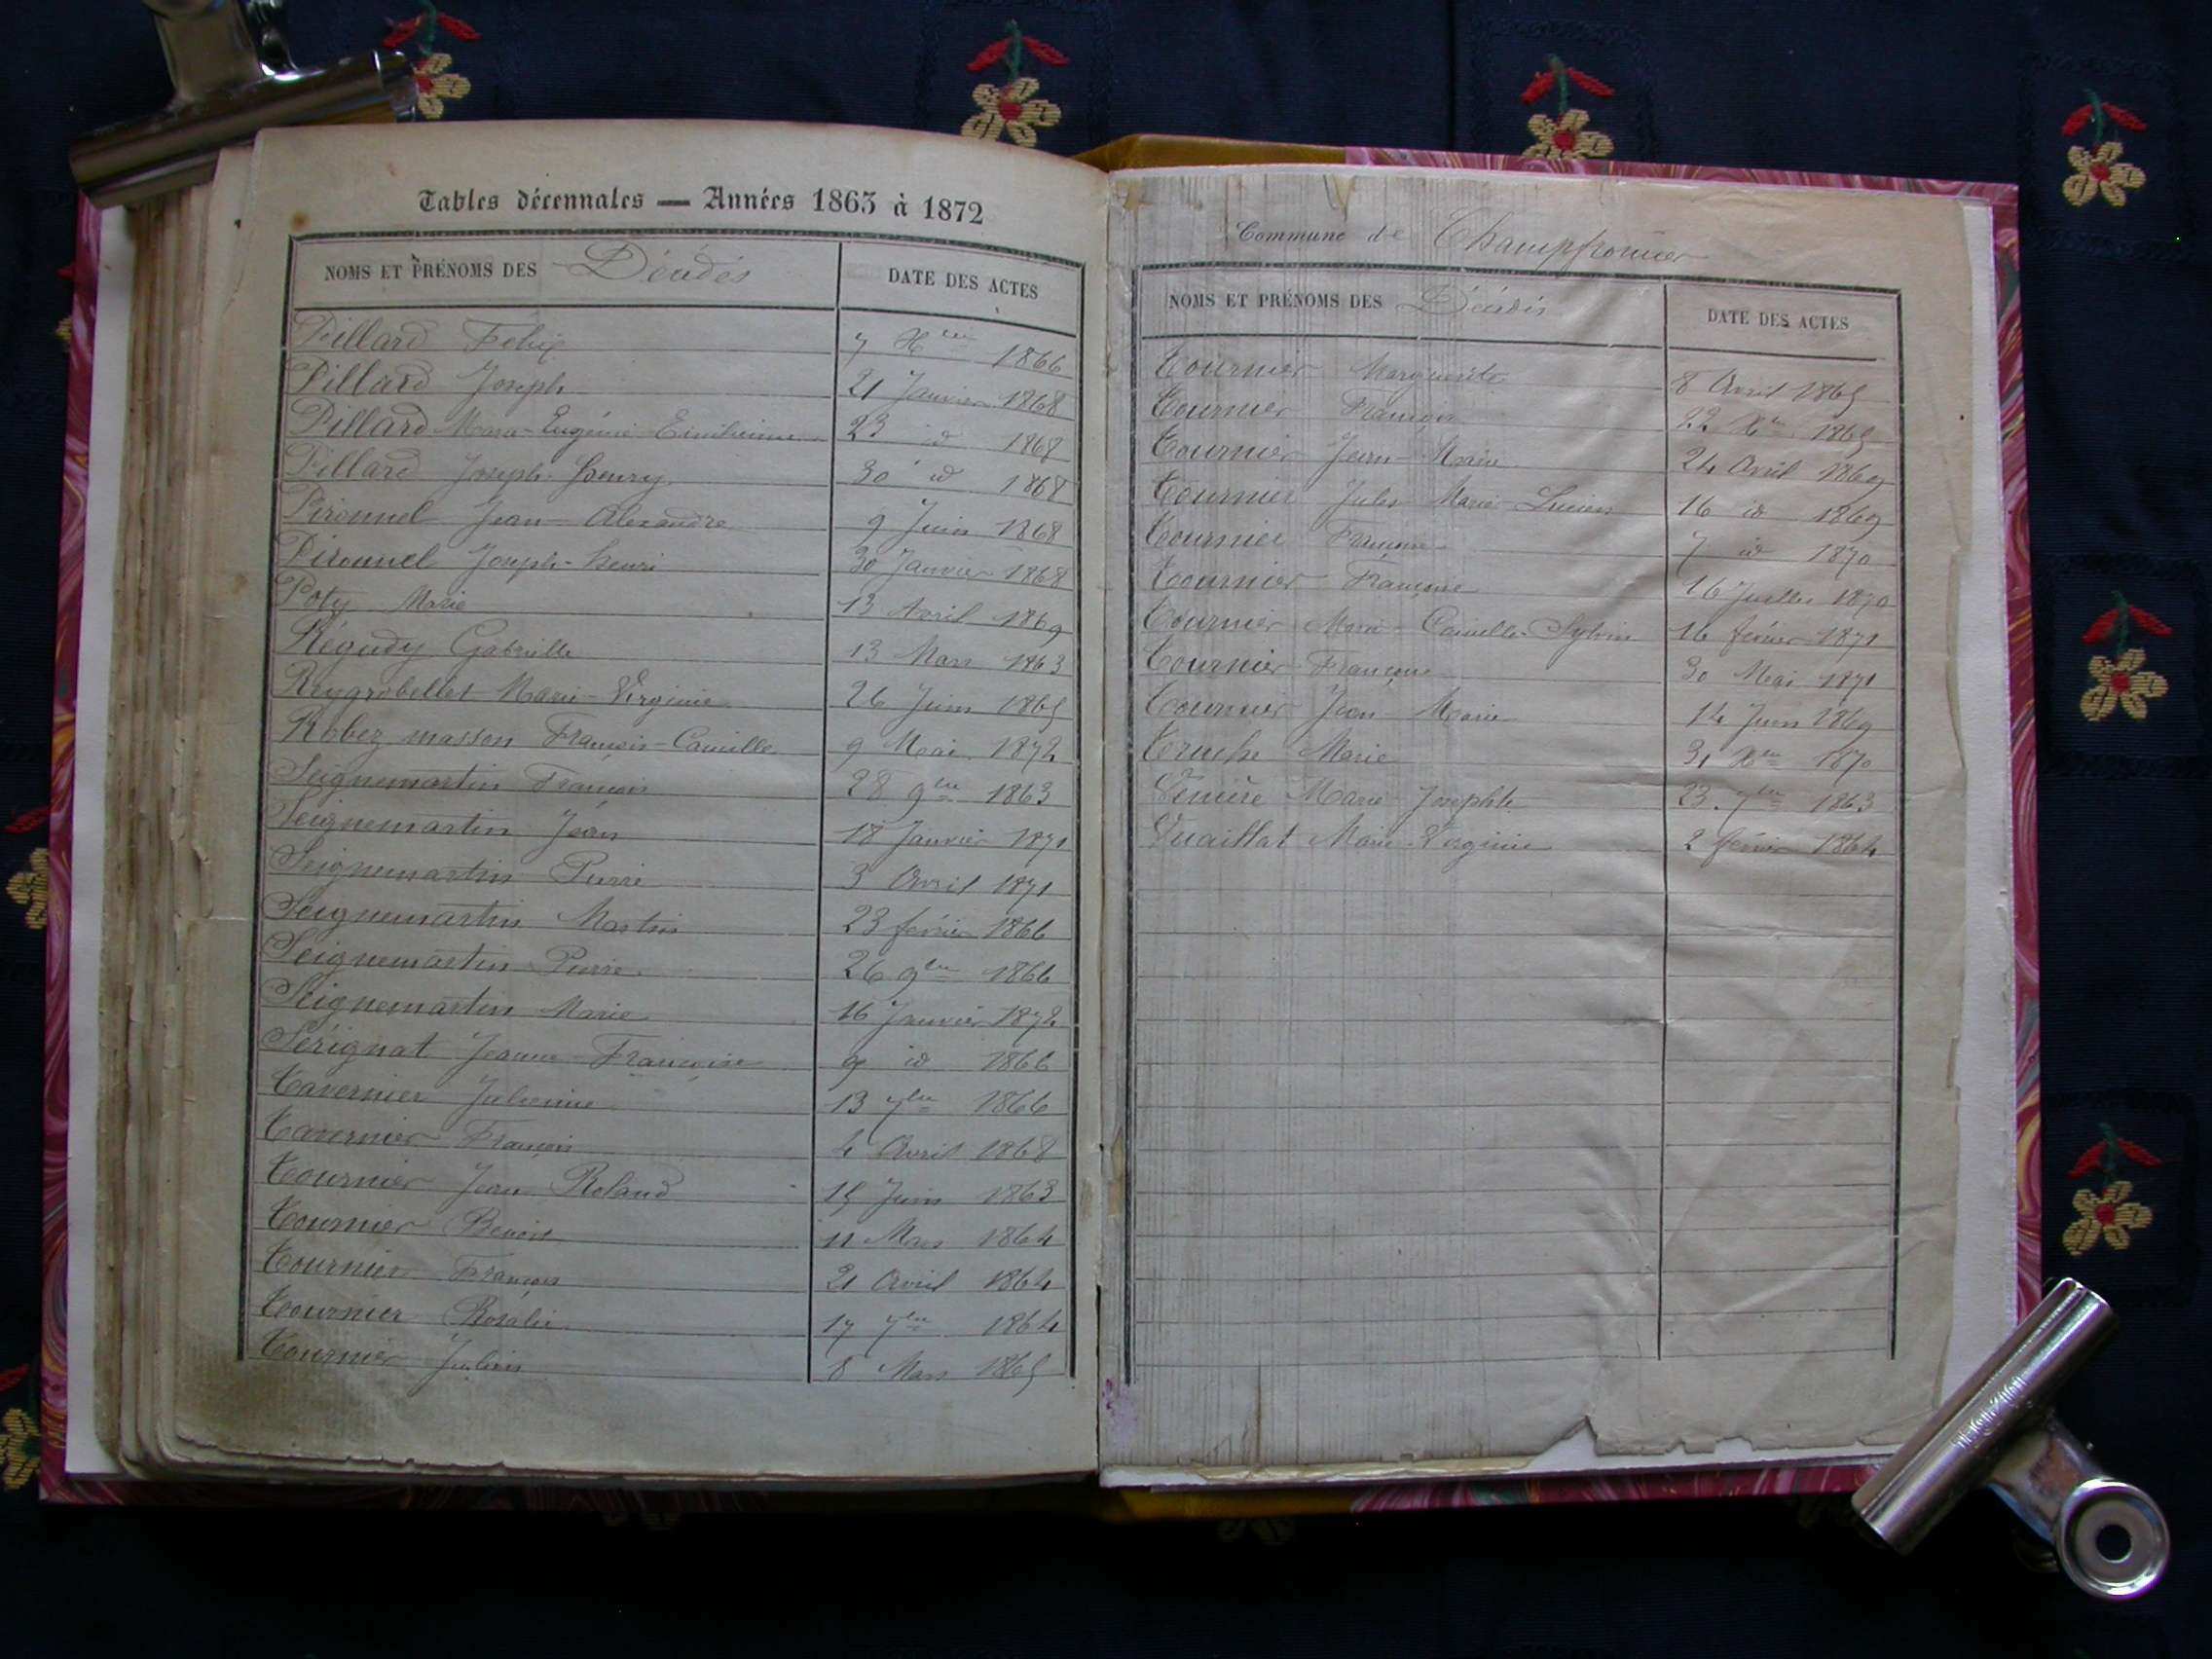 Tables décennales — Années 1863 à 1872
NOMS ET PRÉNOMS DES Décédés DATE DES ACTES
Pillard Félix 7 Xbre 1866
Pillard Joseph 21 Janvier 1868
Pillard Marie-Eugénie Emilienne 23 id 1868
Pillard Joseph-henry 30 id 1868
Pironnel Jean-Alexandre 9 Juin 1868
Pironnel Joseph-henri 30 Janvier 1868
Poty Marie 13 Avril 1869
Régudy Gabrielle 13 Mars 1863
Reygrobellet Marie-Virginie 26 Juin 1865
Robez masson François-Camille 9 Mai 1872
Seignemartin François 28 9bre 1863
Seignemartin Jean 18 Janvier 1871
Seignemartin Pierre 3 Avril 1871
Seignemartin Martin 23 février 1866
Seignemartin Pierre 26 9bre 1866
Seignemartin Marie 16 Janvier 1872
Sérignat Jeanne-Françoise 9 id 1866
Tavernier Julienne 13 7bre 1866
Tavernier François 4 Avril 1868
Tournier Jean Roland 15 Juin 1863
Tournier Benoit 11 Mars 1864
Tournier François 21 Avril 1864
Tournier Rosalie 17 7bre 1864
Tournier Julien 8 Mars 1865
Commune de Champfromier
NOMS ET PRÉNOMS DES Décédés DATE DES ACTES
Tournier Marguerite 8 Avril 1865
Tournier François 22 Xbre 1865
Tournier Jean-Marie 24 Avril 1869
Tournier Jules-Marie-Lucien 16 id 1869
Tournier Françoise 7 id 1870
Tournier Françoise 16 Juillet 1870
Tournier Marie-Camille-Sylvin 16 février 1871
Tournier Françoise 30 Mai 1871
Tournier Jean-Marie 14 Juin 1869
Truche Marie 31 Xbre 1870
Marie Josephte 23 7bre 1863
Vuaillat Marie-Virginie 2 février 1864